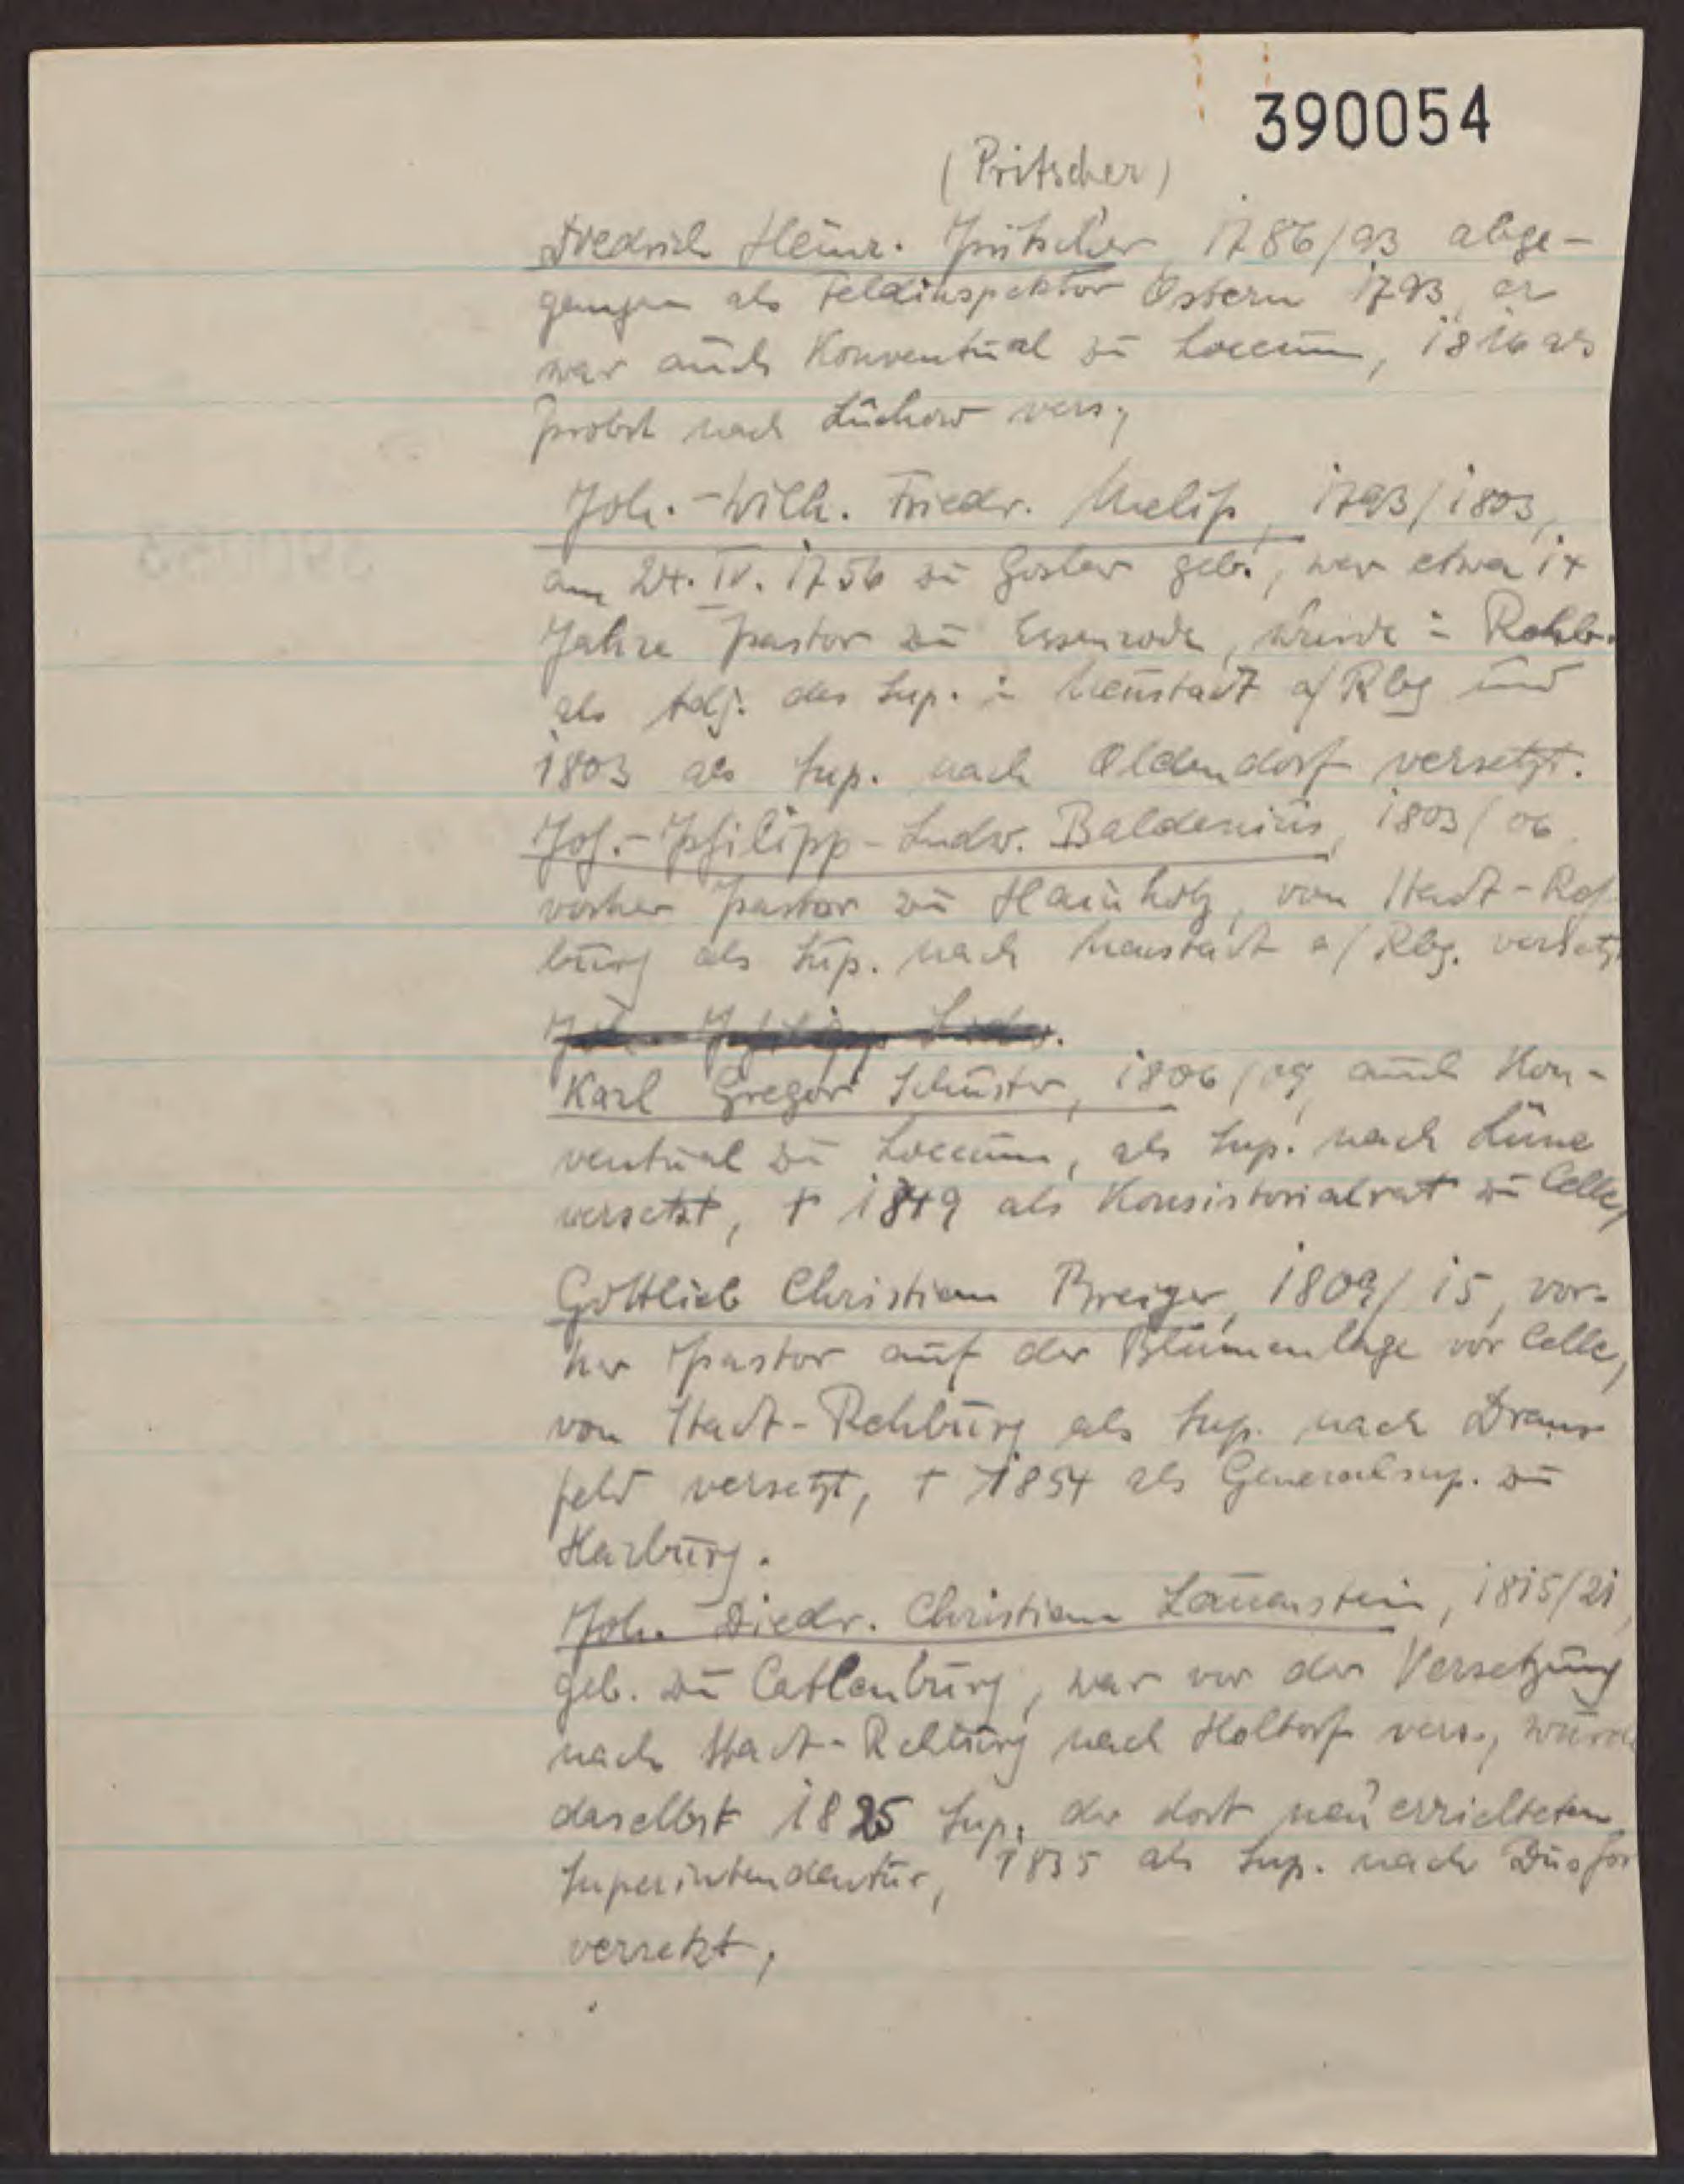 390054
(Pritscher)
Friedrich Heinr. Pritscher, 1786/93 abge-
gangen als Feldinspektor Ostern 1793, er
war auch Konventual zu Loccum, 1816 als
Probst nach Lüchow vers.,
Joh.-Wilh. Friedr. Meliß, 1793/1803,
am 24. IV. 1756 zu Goslar geb., war etwa 14
Jahre Pastor zu Essenrode, wurde in Rehb.
als Adj. des Sup. in Neustadt a/Rbg und
1803 als Sup. nach Oldendorf versetzt.
Joh.-Philipp-Ludw. Baldenius, 1803/06
vorher Pastor zu Hainholz, von Stadt-Reh
burg als Sup. nach Neustadt a/Rbg. versetzt
Joh.-Philipp Ludw.
Karl Gregor Schuster, 1806/09, auch Kon-
ventual zu Loccum, als Sup. nach Lüne
versetzt, † 1849 als Konsistorialrat zu Celle,
Gottlieb Christian Breiger, 1809/15, vor-
her Pastor auf der Blumenlage vor Celle,
von Stadt-Rehburg als Sup. nach Drans
feld versetzt, † 1854 als Generalsup. zu
Harburg.
Joh. Diedr. Christian Lauenstein, 1815/21,
geb. zu Catlenburg, war vor der Versetzung
nach Stadt-Rehburg nach Holtorf vers., wurde
daselbst 1825 Sup. der dort neu errichteten
Superintendentur, 1835 als Sup. nach
versetzt,